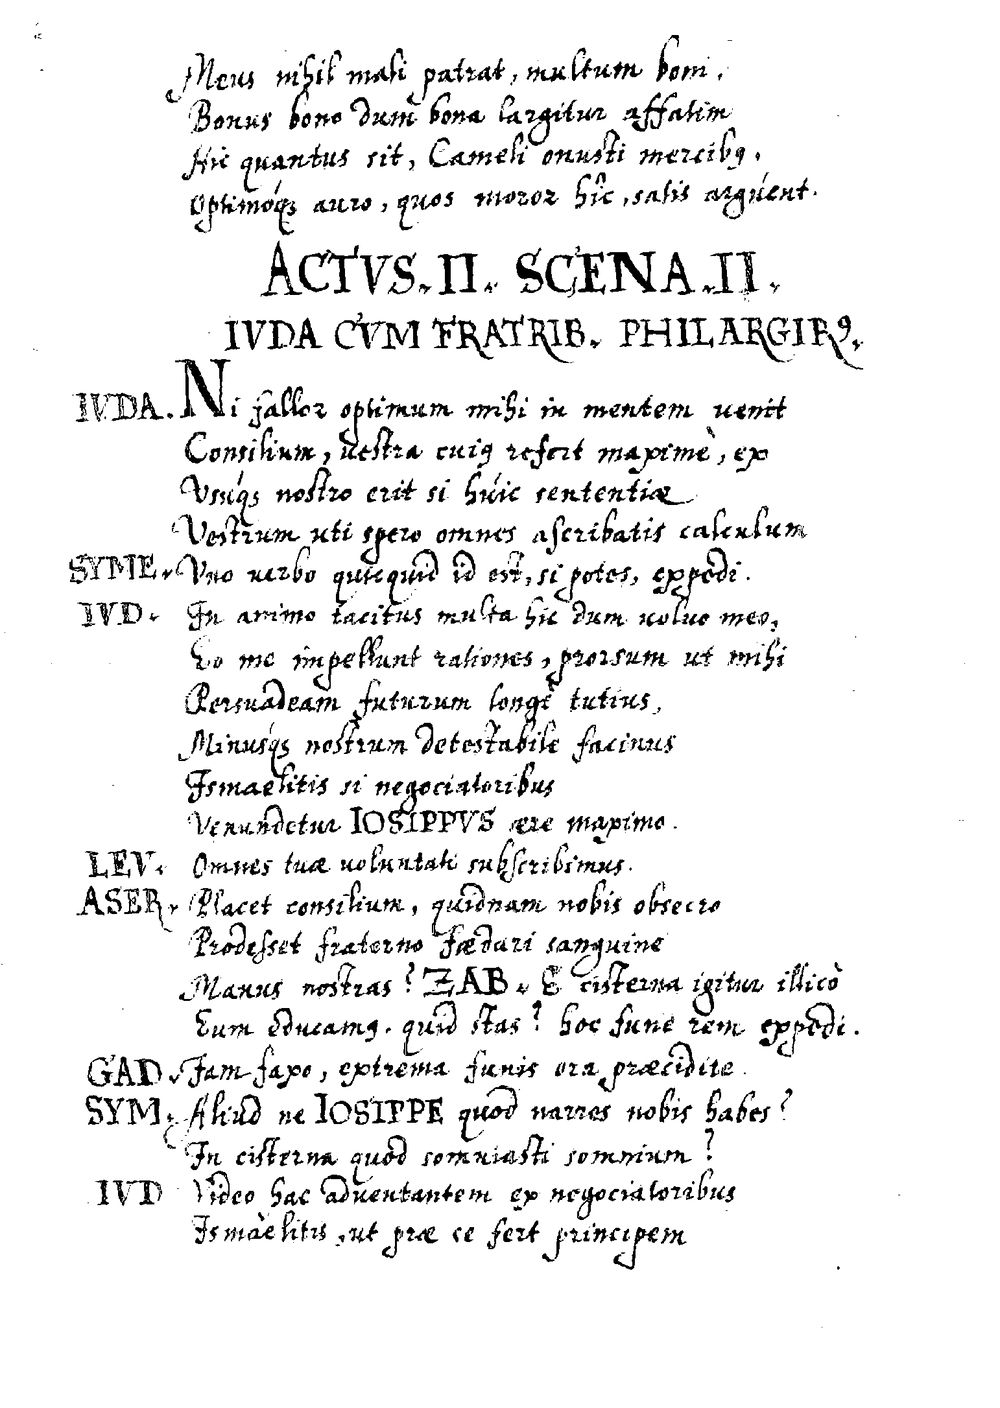 Meus nihil mali patrat, multum boni,
Bonus bono dum bona largitur affatim
Hic quantus sit, Cameli onusti mercibꝰ,
Optimóqꝫ auro, quos moror hîc, satis argúent.
ACTVS. II. SCENA. II.
IVDA CVM FRATRIB. PHILARGIRꝰ.
IVDA. Ni fallor optimum mihi in mentem uenit
Consilium, uestra cuiꝰ refert maximè, ex
Vsúqꝫ nostro erit si húic sententiæ
Vestrum uti spero omnes ascribatis calculum
SYME. Vno uerbo quicquid id est, si potes, expedi.
IVD. In animo tacitus multa hic dum uoluo meo,
Eo me impellunt rationes, prorsum ut mihi
Persuadeam futurum longè tutius,
Minusqꝫ nostrum detestabile facinus
Ismaelitis si negociatoribus
Venundetur IOSIPPVS ære maximo.
LEV. Omnes tuæ uoluntati subscribimus.
ASER. Placet consilium, quidnam nobis obsecro
Prodesset fraterno fædari sanguine
Manus nostras? ZAB. E cisterna igitur illicò
Eum educamꝰ. quid stas? hoc fune rem expedi.
GAD. Jam faxo, extrema funis ora præcidite.
SYM. Aliud ne IOSIPPE quod narres nobis habes?
In cisterna quod somniasti somnium?
IVD Video hac aduentantem ex negociatoribus
Ismàelitis, ut præ ce fert principem